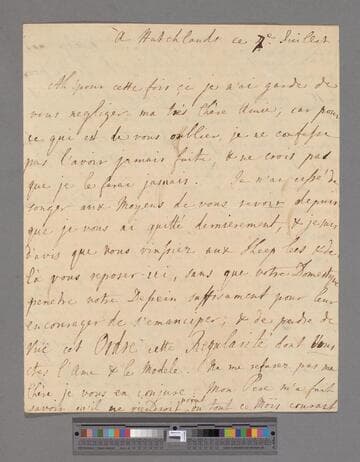 A Hatchlands ce 7e Juillet
Ah pour cette fois ce je n'ai garde de
vous negliger ma très chère Amie; car pour
ce qui est de vous oublier, je ne confesse
pas l'avoir jamais faite, & ne crois pas
que je le ferai jamais. Je n'ai cessé de
songer aux Moyens de vous revoir depuis
que je vous ai quitté dernierement, & je suis
d'avis que vous vinssiez aux &
là vous reposer ici, sans que votre Domestique
penetre votre Dessein suffisament pour leur
encourager de s'emanciper; & de perdre de
vue cet Ordre cette Regularité dont Vous
etes l'Ame & le Modele. Ne me refusez pas ma
Chère je vous en conjure. Mon Pere m'a fait
savoir qu'il ne viendroit point ou tout ce Mois courant